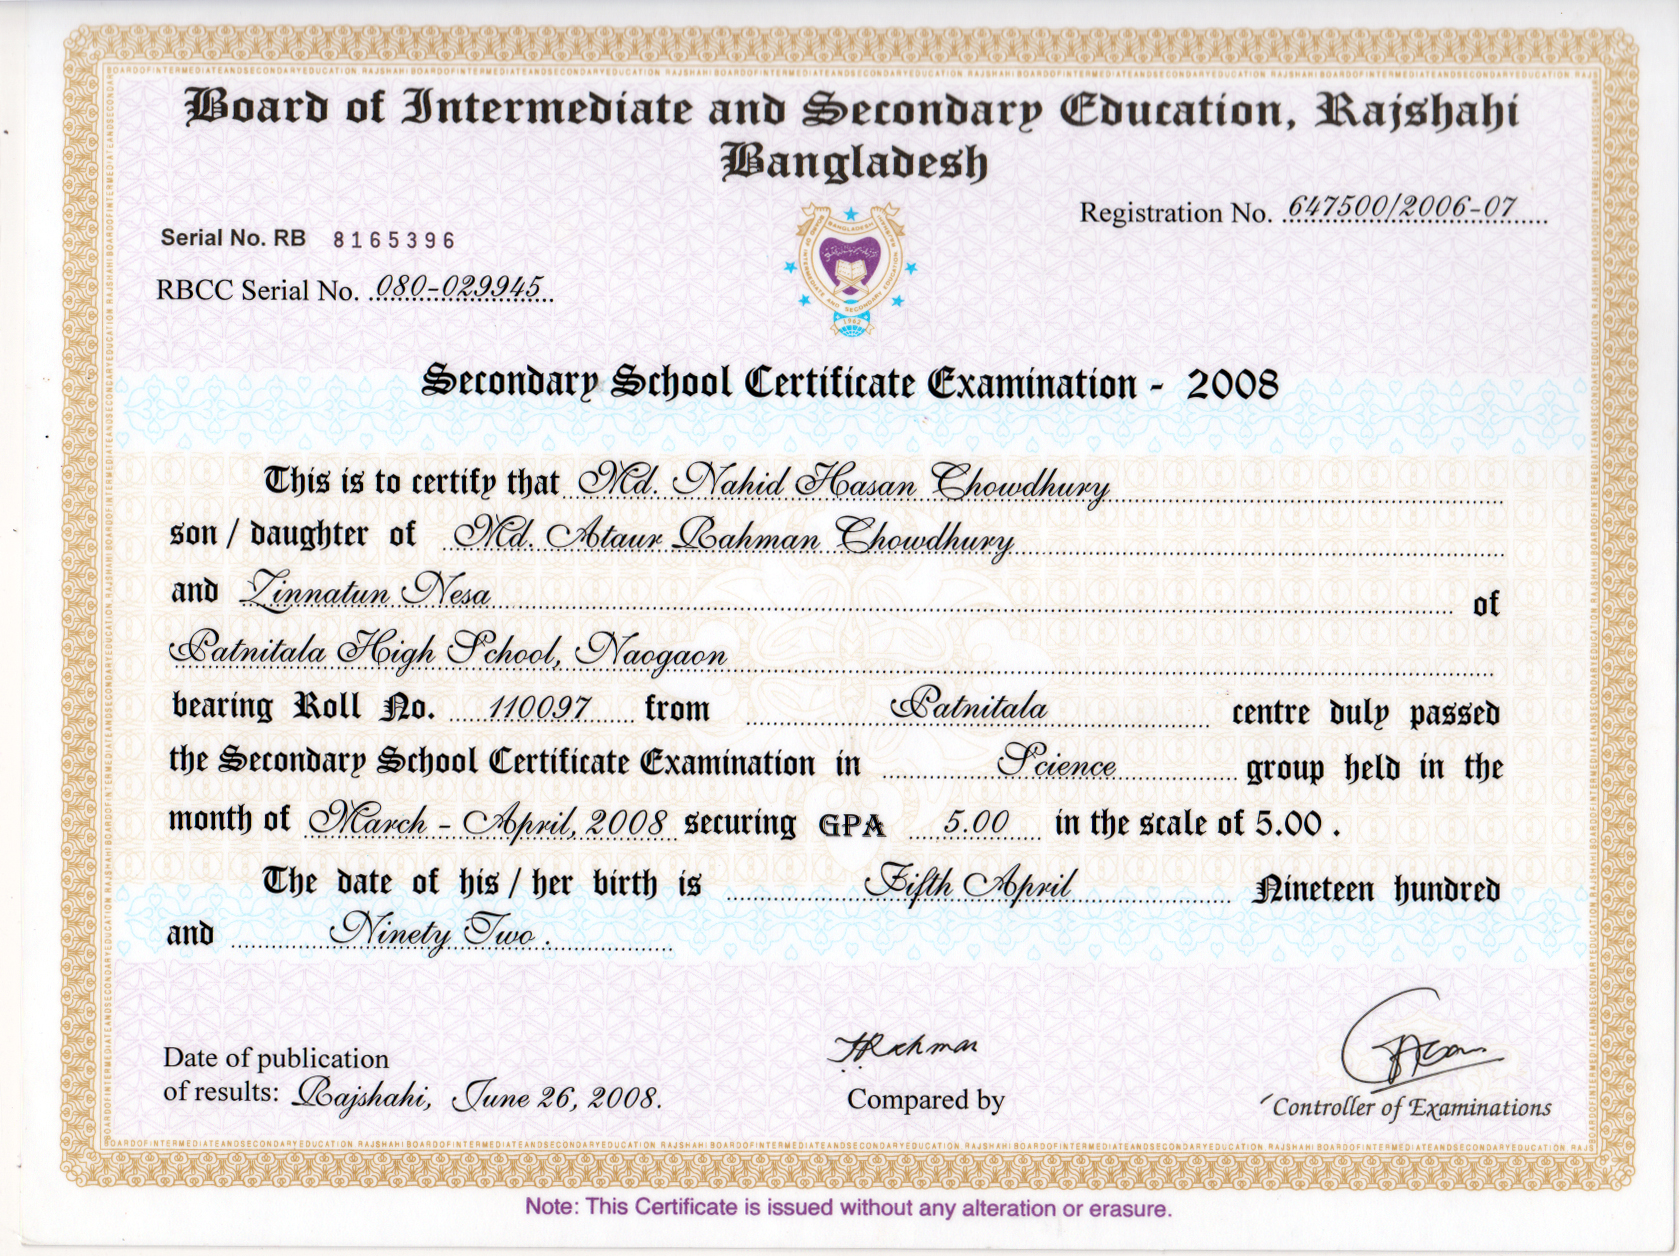 Board of Intermediate and Secondary Education, Rajshahi
Bangladesh
Registration No. 647500/2006-07
Serial No. RB 8165396
RBCC Serial No. 080-029945
BANGLADESH
1962
Secondary School Certificate Examination - 2008
This is to certify that Md. Nahid Hasan Chowdhury
son / daughter of Md. Ataur Rahman Chowdhury
and Zinnatun Nesa of
Patnitala High School, Naogaon
bearing Roll No. 110097 from Patnitala centre duly passed
the Secondary School Certificate Examination in Science group held in the
month of March - April, 2008 securing GPA 5.00 in the scale of 5.00 .
The date of his / her birth is Fifth April Nineteen hundred
and Ninety Two .
Date of publication
of results: Rajshahi, June 26, 2008.
Compared by
Controller of Examinations
Note: This Certificate is issued without any alteration or erasure.